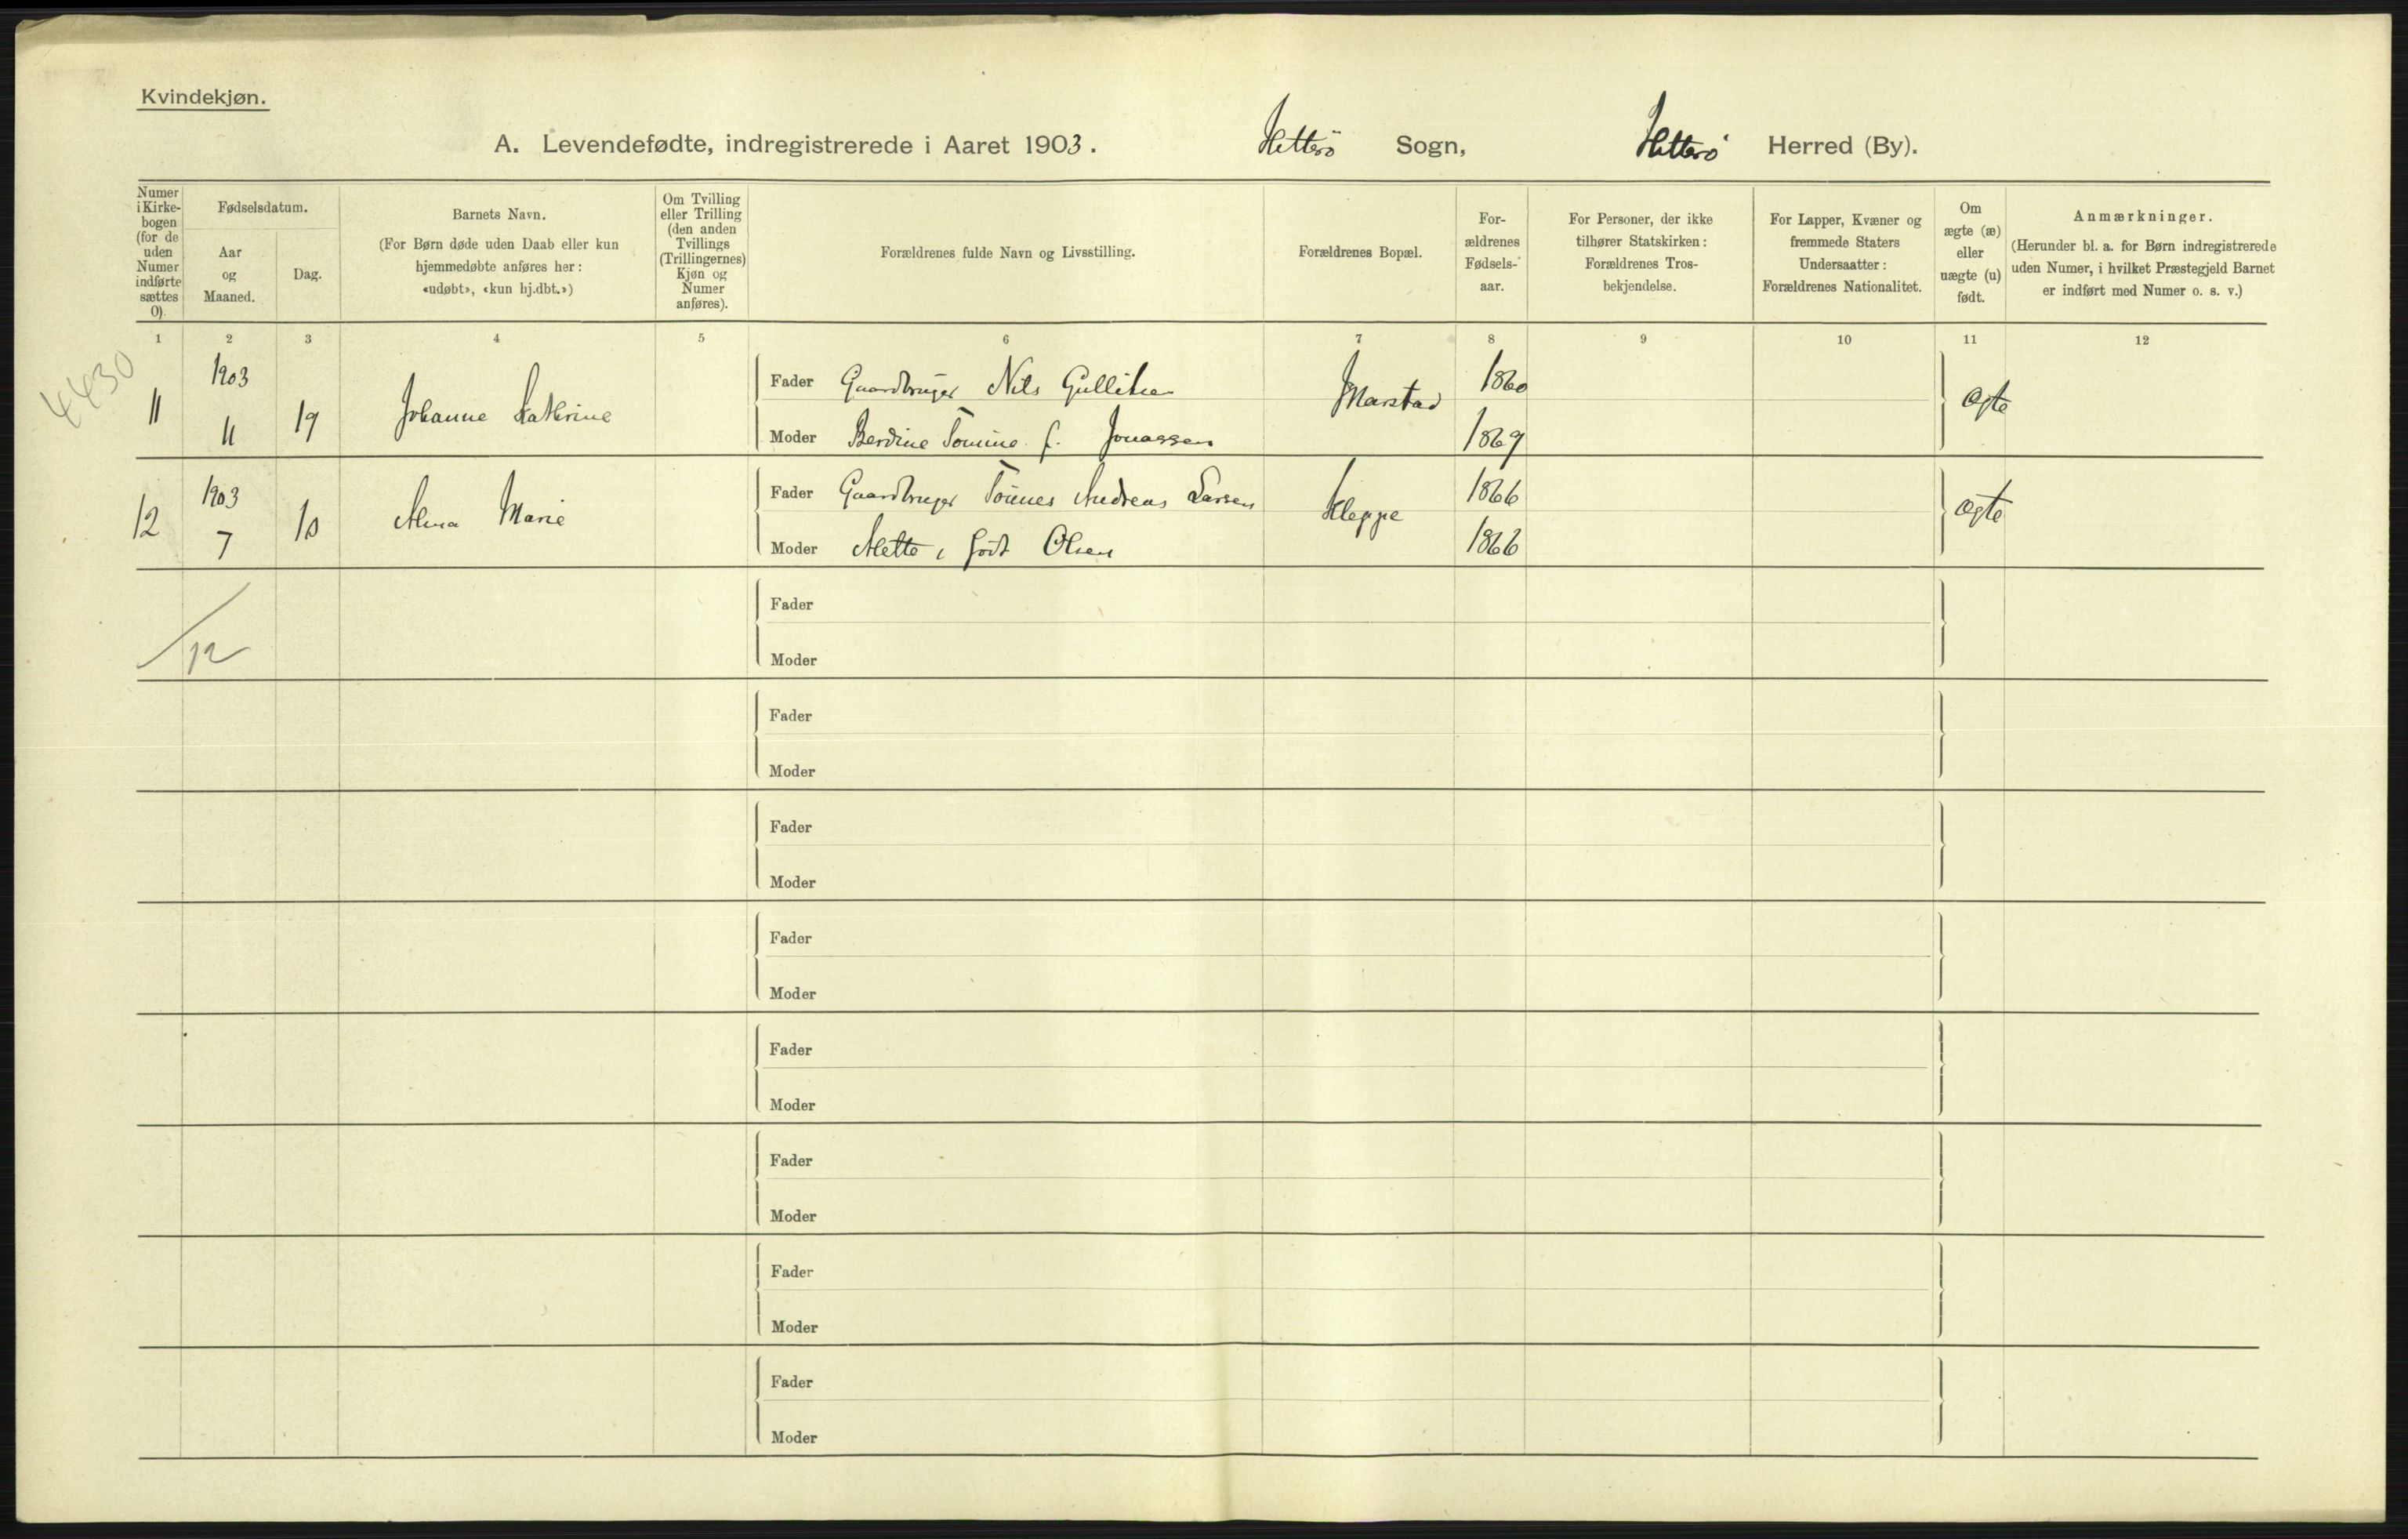 Kvindekjøn.
A. Levendefødte, indregistrerede i Aaret 1903. Hitterö Sogn, Hitterö Herred (By).
Numer i Kirkebogen (for de uden Numer indførte sættes 0).
Fødselsdatum.
Aar og Maaned.
Dag.
Barnets Navn.
(For Børn døde uden Daab eller kun hjemmedøbte anføres her: «udøbt», «kun hj.dbt.»)
Om Tvilling eller Trilling (den anden Tvillings (Trillingernes) Kjøn og Numer anføres).
Forældrenes fulde Navn og Livsstilling.
Forældrenes Bopæl.
Forældrenes Fødselsaar.
For Personer, der ikke tilhører Statskirken: Forældrenes Trosbekjendelse.
For Lapper, Kvæner og fremmede Staters Undersaatter: Forældrenes Nationalitet.
Om ægte (æ) eller uægte (u) født.
Anmærkninger.
(Herunder bl. a. for Børn indregistrerede uden Numer, i hvilket Præstegjeld Barnet er indført med Numer o. s. v.)
1 2 3 4 5 6 7 8 9 10 11 12
4430
11 1903 11 19 Johanne Kathrine
Fader Gaardbruger Nils Gulliksen Marstad 1860 ægte
Moder Berdine Tomine f. Jonassen 1869
12 1903 7 10 Alma Marie
Fader Gaardbruger Tönnes Andreas Larsen Kleppe 1866 ægte
Moder Mette, född Olsen 1866
Fader
12
Moder
Fader
Moder
Fader
Moder
Fader
Moder
Fader
Moder
Fader
Moder
Fader
Moder
Fader
Moder